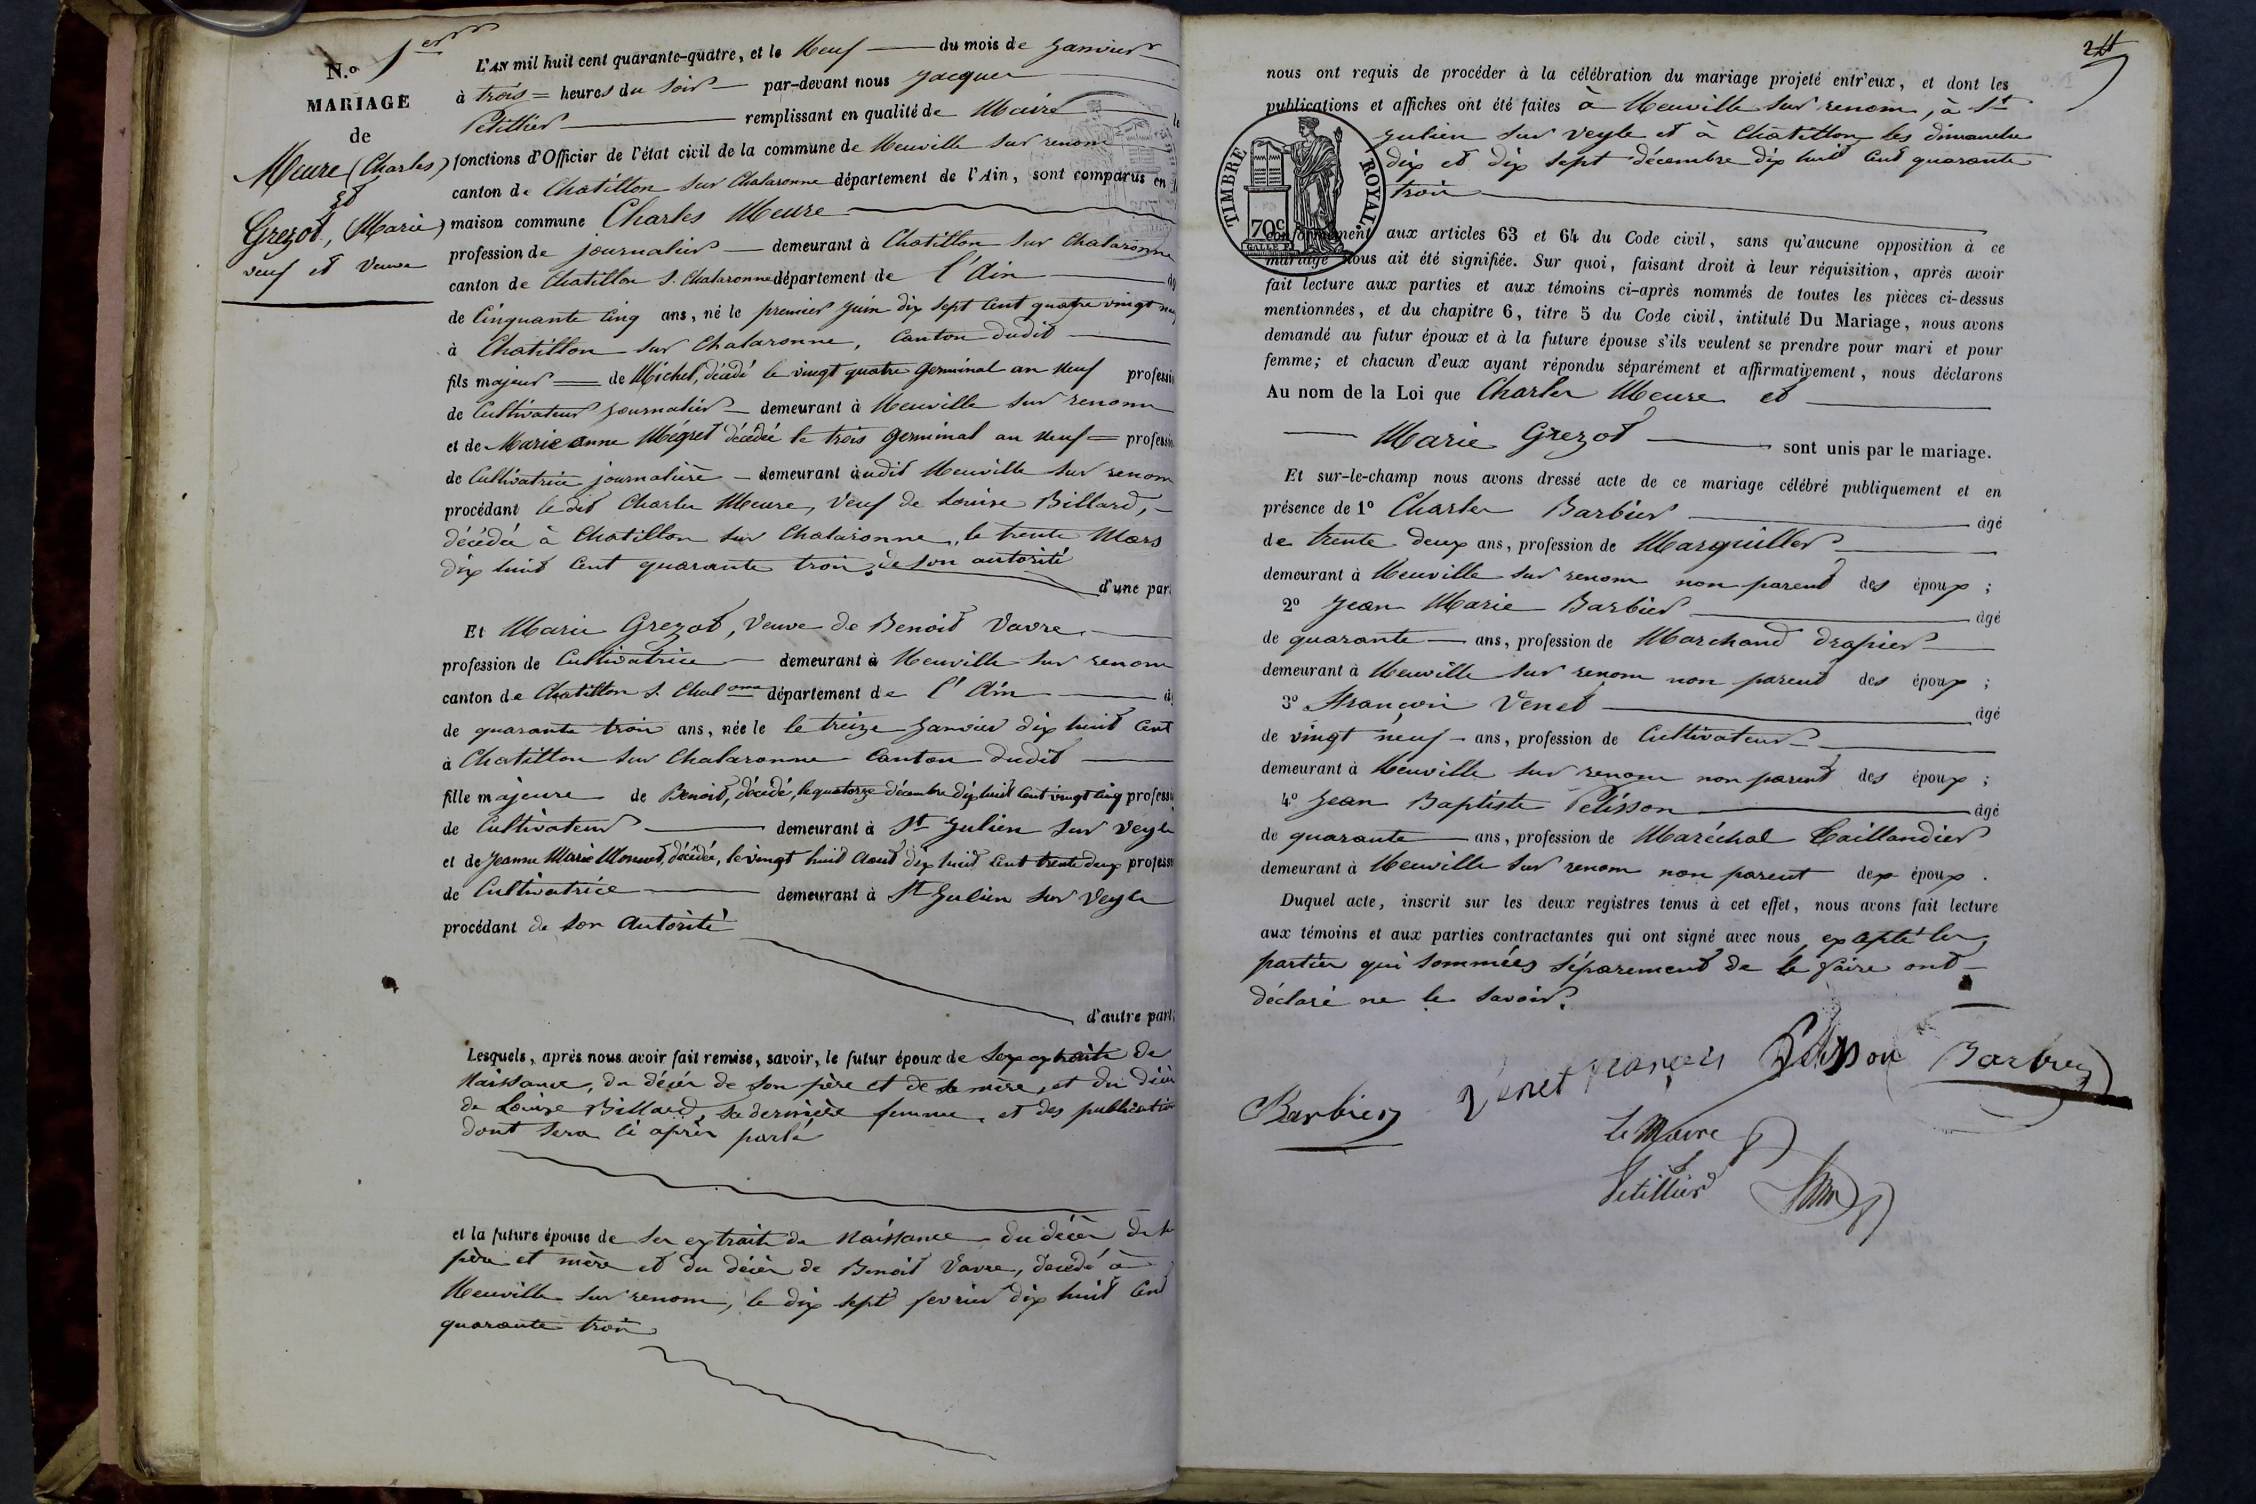 N.º 1er
MARIAGE
de
Meure (Charles)
et
Grezot, (Marie)
veuf et veuve
L'AN mil huit cent quarante-quatre, et le Neuf du mois de Janvier
à trois = heures du soir par-devant nous Jacques
Petillier remplissant en qualité de Maire
fonctions d'Officier de l'état civil de la commune de Neuville sur renom
canton de Chatillon sur Chalaronne département de l'Ain, sont comparus en
maison commune Charles Meure
profession de journalier demeurant à Chatillon sur Chalaronne
canton de Chatillon s. Chalaronne département de l'Ain
de Cinquante cinq ans, né le premier juin dix sept cent quatre vingt
à Chatillon sur Chalaronne, Canton dudit
fils majeur de Michel, décédé le vingt quatre germinal an neuf professi
de Cultivateur journalier demeurant à Neuville sur renom
et de Marie anne Mégret décédée le trois germinal an neuf = profession
de Cultivatrice journalière demeurant audit Neuville sur renom
procédant le dit Charles Meure, Veuf de Louise Billard,
décédée à Chatillon sur Chalaronne, le trente Mars
dix huit cent quarante trois, de son autorité
d'une part
Et Marie Grezot, Veuve de Benoit Vavre
profession de Cultivatrice demeurant à Neuville sur renom
canton de Chatillon s. Chalonne département de l'Ain
de quarante trois ans, née le le treize Janvier dix huit cent
à Chatillon sur Chalaronne Canton dudit
fille majeure de Benoit, décédé, le quatorze décembre dix huit cent vingt cinq professi
de Cultivateur demeurant à St Julien sur Veyle
et de Jeanne Marie décédée, le vingt huit Aout dix huit cent trente deux profess
de Cultivatrice demeurant à St Julien sur Veyle
procédant de son Autorité
d'autre part
Lesquels, après nous avoir fait remise, savoir, le futur époux de ses extraits de
Naissance, du décès de son père et de sa mère, et du décès
de Louise Billard, sa dernière femme, et des publication
dont sera ci après parlé
et la future épouse de ses extraits de Naissance du décès de
père et mère et du décès de Benoit Vavre, décédé à
Neuville sur renom, le dix sept fevrier dix huit cent
quarante trois
24
nous ont requis de procéder à la célébration du mariage projeté entr'eux, et dont les
publications et affiches ont été faites à Neuville sur renom, à St
Julien sur Veyle et à Chatillon les dimanches
dix et dix sept décembre dix huit cent quarante
trois
TIMBRE ROYAL.
70c
conformément aux articles 63 et 64 du Code civil, sans qu'aucune opposition à ce
mariage nous ait été signifiée. Sur quoi, faisant droit à leur réquisition, après avoir
fait lecture aux parties et aux témoins ci-après nommés de toutes les pièces ci-dessus
mentionnées, et du chapitre 6, titre 5 du Code civil, intitulé Du Mariage, nous avons
demandé au futur époux et à la future épouse s'ils veulent se prendre pour mari et pour
femme; et chacun d'eux ayant répondu séparément et affirmativement, nous déclarons
Au nom de la Loi que Charles Meure et
Marie Grezot sont unis par le mariage.
Et sur-le-champ nous avons dressé acte de ce mariage célébré publiquement et en
présence de 1º Charles Barbier âgé
de trente deux ans, profession de Marguiller
demeurant à Neuville sur renom non parent des époux;
2º Jean Marie Barbier âgé
de quarante ans, profession de Marchand drapier
demeurant à Neuville sur renom non parent des époux;
3º François Venet âgé
de vingt neuf ans, profession de Cultivateur
demeurant à Neuville sur renom non parent des époux;
4º Jean Baptiste Pelisson âgé
de quarante ans, profession de Maréchal Taillandier
demeurant à Neuville sur renom non parent des époux.
Duquel acte, inscrit sur les deux registres tenus à cet effet, nous avons fait lecture
aux témoins et aux parties contractantes qui ont signé avec nous, excepté les
parties qui sommées séparement de le faire ont
déclaré ne le savoir.
Barbier Venet françois Pelisson Barbier
Le Maire
Petillier